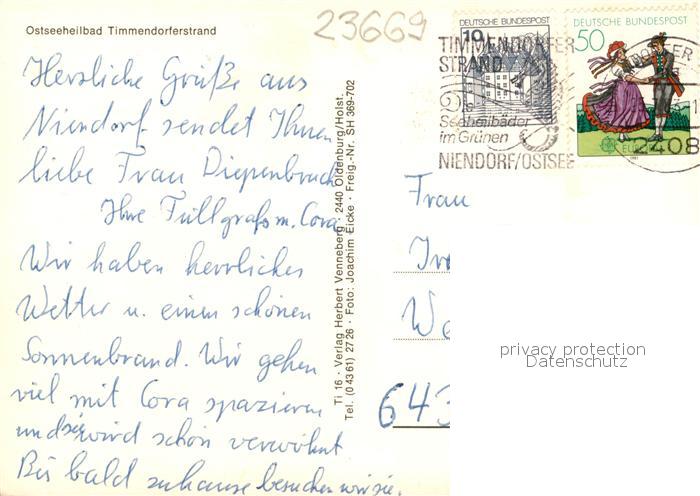 Ostseeheilbad Timmendorferstrand
23669
Herzliche Grüße aus
Niendorf sendet Ihnen
liebe Frau Diepenbruck
Ihre Füllgrafs m. Cora
Wir haben herrliches
Wetter u. einen schönen
Sonnenbrand. Wir gehen
viel mit Cora spazieren
und sie wird schön verwöhnt
Bis bald zuhause besuchen wir sie.
Ti 16 · Verlag Herbert Venneberg · 2440 Oldenburg/Holst.
Tel. (0 43 61) 27 26 · Foto: Joachim Eicke · Freig.-Nr. SH 369-702
DEUTSCHE BUNDESPOST
10
DEUTSCHE BUNDESPOST
50
EUROPA
1981
TIMMENDORFER
STRAND
Seeheilbäder
im Grünen
NIENDORF/OSTSEE
2408
Frau
643
privacy protection
Datenschutz